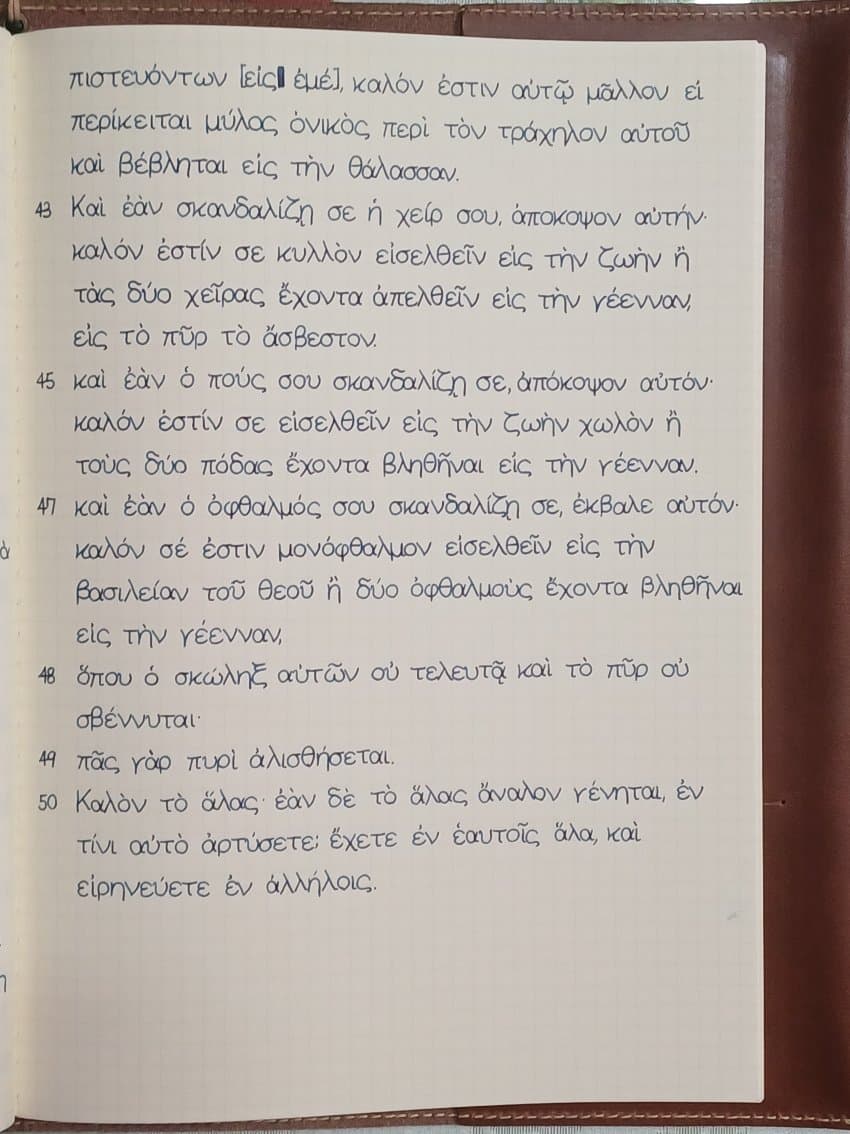 πιστευόντων [εἰς ἐμέ], καλόν ἐστιν αὐτῷ μᾶλλον εἰ
περίκειται μύλος ὀνικὸς περὶ τὸν τράχηλον αὐτοῦ
καὶ βέβληται εἰς τὴν θάλασσαν.
43 Καὶ ἐὰν σκανδαλίζῃ σε ἡ χείρ σου, ἀποκοψον αὐτήν·
καλόν ἐστίν σε κυλλὸν εἰσελθεῖν εἰς τὴν ζωὴν ἢ
τὰς δύο χεῖρας ἔχοντα ἀπελθεῖν εἰς τὴν γέενναν,
εἰς τὸ πῦρ τὸ ἄσβεστον.
45 καὶ ἐὰν ὁ πούς σου σκανδαλίζῃ σε, ἀπόκοψον αὐτόν·
καλόν ἐστίν σε εἰσελθεῖν εἰς τὴν ζωὴν χωλὸν ἢ
τοὺς δύο πόδας ἔχοντα βληθῆναι εἰς τὴν γέενναν.
47 καὶ ἐὰν ὁ ὀφθαλμός σου σκανδαλίζῃ σε, ἐκβαλε αὐτόν·
καλόν σέ ἐστιν μονόφθαλμον εἰσελθεῖν εἰς τὴν
βασιλείαν τοῦ θεοῦ ἢ δύο ὀφθαλμοὺς ἔχοντα βληθῆναι
εἰς τὴν γέενναν,
48 ὅπου ὁ σκώληξ αὐτῶν οὐ τελευτᾷ καὶ τὸ πῦρ οὐ
σβέννυται·
49 πᾶς γὰρ πυρὶ ἁλισθήσεται.
50 Καλὸν τὸ ἅλας· ἐὰν δὲ τὸ ἅλας ἄναλον γένηται, ἐν
τίνι αὐτὸ ἀρτύσετε; ἔχετε ἐν ἑαυτοῖς ἅλα, καὶ
εἰρηνεύετε ἐν ἀλλήλοις.